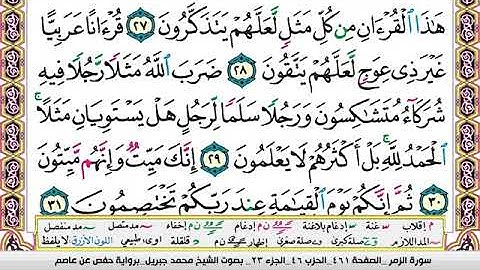 هَٰذَا الْقُرْءَانِ مِن كُلِّ مَثَلٍ لَّعَلَّهُمْ يَتَذَكَّرُونَ ٢٧ قُرْءَانًا عَرَبِيًّا
غَيْرَ ذِي عِوَجٍ لَّعَلَّهُمْ يَتَّقُونَ ٢٨ ضَرَبَ اللَّهُ مَثَلًا رَّجُلًا فِيهِ
شُرَكَاءُ مُتَشَاكِسُونَ وَرَجُلًا سَلَمًا لِّرَجُلٍ هَلْ يَسْتَوِيَانِ مَثَلًا ۚ
الْحَمْدُ لِلَّهِ ۚ بَلْ أَكْثَرُهُمْ لَا يَعْلَمُونَ ٢٩ إِنَّكَ مَيِّتٌ وَإِنَّهُم مَّيِّتُونَ
٣٠ ثُمَّ إِنَّكُمْ يَوْمَ الْقِيَٰمَةِ عِندَ رَبِّكُمْ تَخْتَصِمُونَ ٣١
م اقلاب س غنة س إدغام بلاغنة ن م إدغام ن م إخفاء مد متصل مد منفصل
المد اللازم صلة كبرى صلة صغرى إظهار ن م قلقلة اوى طبيعي اللون الأزرق لا يلفظ
سورة الزمر_الصفحة ٤٦١_الحزب ٤٦_الجزء ٢٣_ بصوت الشيخ محمد جبريل_برواية حفص عن عاصم